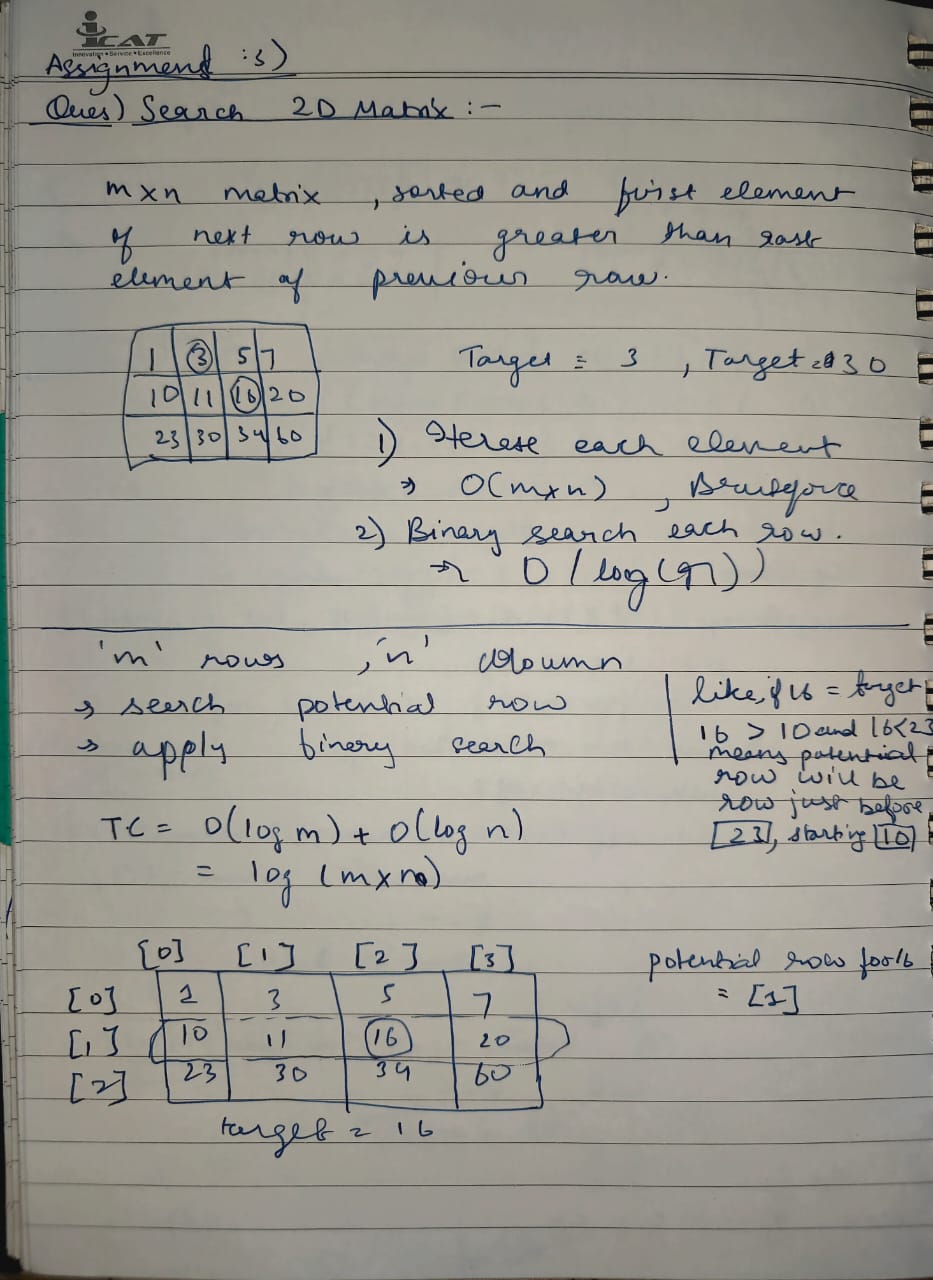 iCAT
Innovation • Service • Excellence
Assignment :3)
Ques) Search 2D Matrix :-
mxn matrix , sorted and first element
of next row is greater than last
element of previous row.
1 3 5 7
10 11 16 20
23 30 34 60
Target = 3 , Target = 30
1) Iterate each element
→ O(mxn) , Bruteforce
2) Binary search each row.
→ O(log(n))
'm' rows , 'n' coloumn
→ search potential row
→ apply binary search
like, if 16 = target
16 > 10 and 16<23
means potential
row will be
row just before
[23], starting [10]
TC = O(log m) + O(log n)
= log (mxn)
[0] [1] [2] [3]
[0] 1 3 5 7
[1] 10 11 16 20
[2] 23 30 34 60
target = 16
potential row for 16
= [1]